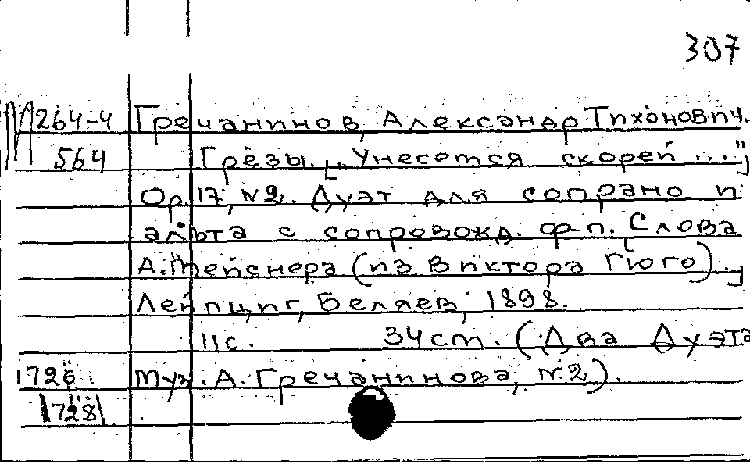 307
М264-4 Гречанинов, Александр Тихонович.
564 Грёзы. ["Унесемся скорей ..."]
Ор.17, №2. Дуэт для сопрано и
альта с сопровожд. ф-п. [Слова
А. Мейснера (из Виктора Гюго).]
Лейпциг, Беляев, 1898.
11 с. 34 cm. (Два Дуэта
1726 муз. А. Гречанинова, №2).
1728